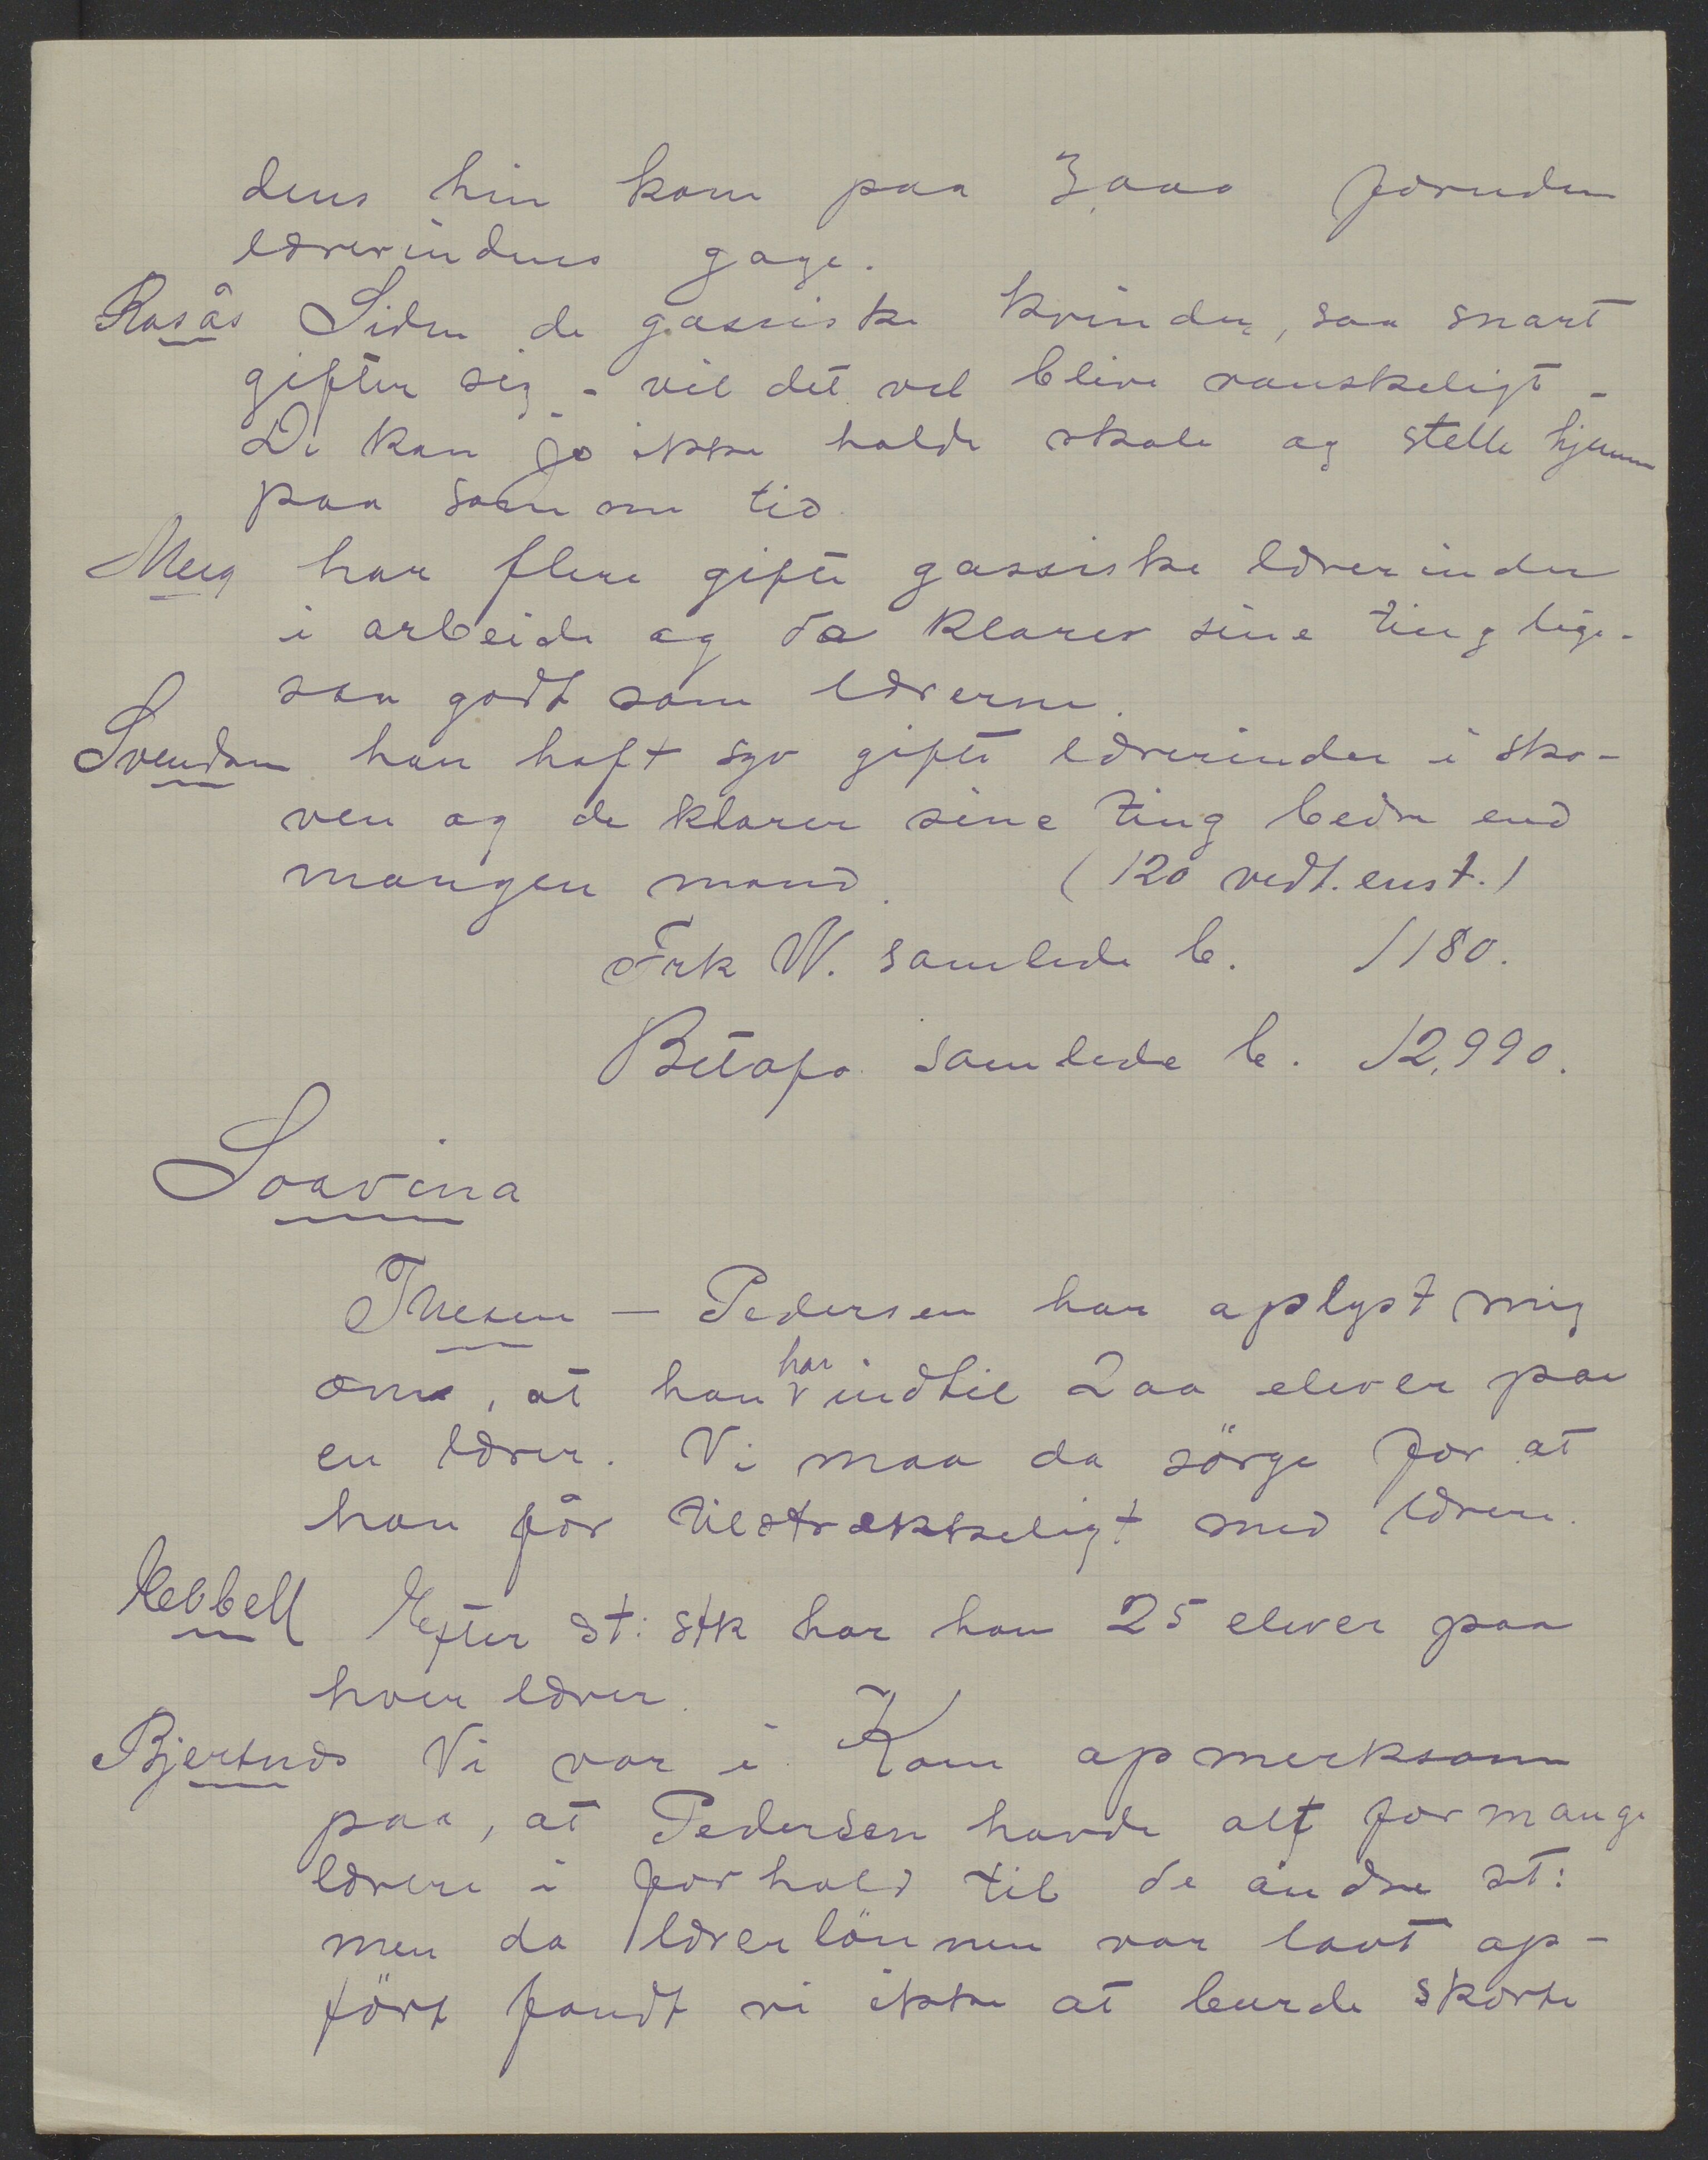 dens hin kom paa 3,000 foruden
lærerindens gage.
Rosås Siden de gassiske kvinder, saa snart
gifter sig - vil det vel blive vanskeligt -
De kan jo ikke holde skole og stelle hjemme
paa samme tid.
Meeg har flere gifte gassiske lærerinder
i arbeide og de klarer sine ting lige-
saa godt som lærerne.
Svendsen har haft syv gifte lærerinder i sko-
len og de klarer sine ting bedre end
mangen mand. (120 vedt. enst.)
Frk W. samlede b. 1180.
Betafo samlede b. 12,990.
Soavina
Thesen - Pedersen har oplyst mig
om, at han har indtil 200 elever paa
en lærer. Vi maa da sörge for at
han får tilstrækkeligt med lærere.
Kebbell Efter st: stk har han 25 elever paa
hver lærer.
Bjertnæs Vi var i Kom opmerksom
paa, at Pedersen havde alt for mange
lærere i forhold til de andre st:
men da lærerlönnen var lavt op-
fört fandt vi ikke at burde skjære